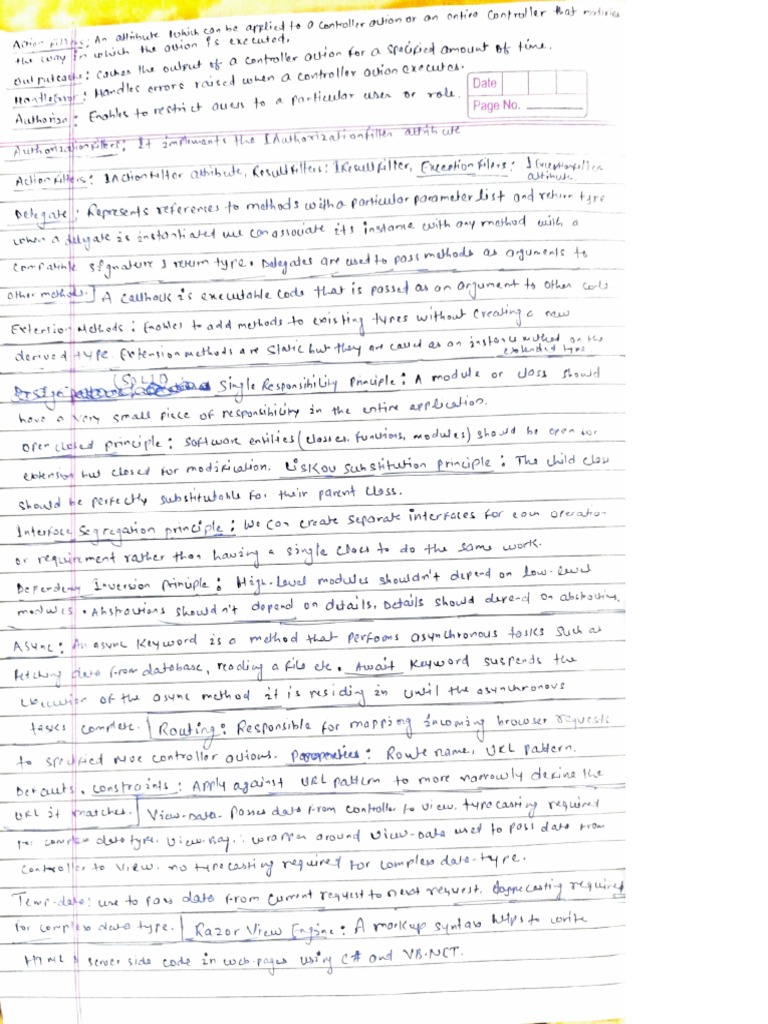 Action filters: An attribute which can be applied to a controller action or an entire controller that modifies
the way in which the action is executed.
Outputcache: Caches the output of a controller action for a specified amount of time.
HandleError: Handles errors raised when a controller action executes.
Date
Authorize: Enables to restrict access to a particular user or role.
Page No.
Authorization filters: It implements the IAuthorizationfilter attribute
Action filters: IActionfilter attribute, Resultfilters: IResultfilter, Exception filers: IExceptionfilter
attribute.
Delegate: Represents references to methods with a particular parameter list and return type
when a delegate is instantiated we can associate its instance with any method with a
compatible signature & return type. Delegates are used to pass methods as arguments to
other methods.] A callback is executable code that is passed as an argument to other code
Extension Methods: Enables to add methods to existing types without creating a new
derived type. Extension methods are static but they are called as an instance method on the
extended type
(SOLID Single Responsibility Principle: A module or class should
have a very small piece of responsibility in the entire application.
Open closed principle: Software entities (classes, functions, modules) should be open for
extension but closed for modification. Liskov substitution principle: The child class
should be perfectly substitutable for their parent class.
Interface Segregation principle: We can create separate interfaces for each operation
or requirement rather than having a single class to do the same work.
Dependency Inversion Principle: High-level modules shouldn't depend on low-level
modules. Abstractions shouldn't depend on details. Details should depend on abstractions.
Async: An async keyword is a method that performs asynchronous tasks such as
fetching data from database, reading a file etc. Await keyword suspends the
execution of the async method it is residing in until the asynchronous
tasks complete.] Routing: Responsible for mapping incoming browser requests
to specified MVC controller actions. Properties: Route name, URL pattern.
Defaults, constraints: Apply against URL pattern to more narrowly define the
URL it matches.] View-Data- Passes data from controller to view. typecasting required
for complex data type. View-Bag: wrapper around view-Data used to pass data from
controller to view. no typecasting required for complex data-type.
Temp-data: use to pass data from current request to next request. typecasting required
for complex data type.] Razor View Engine: A markup syntax helps to write
HTML & server side code in web-pages using C# and VB.NET.